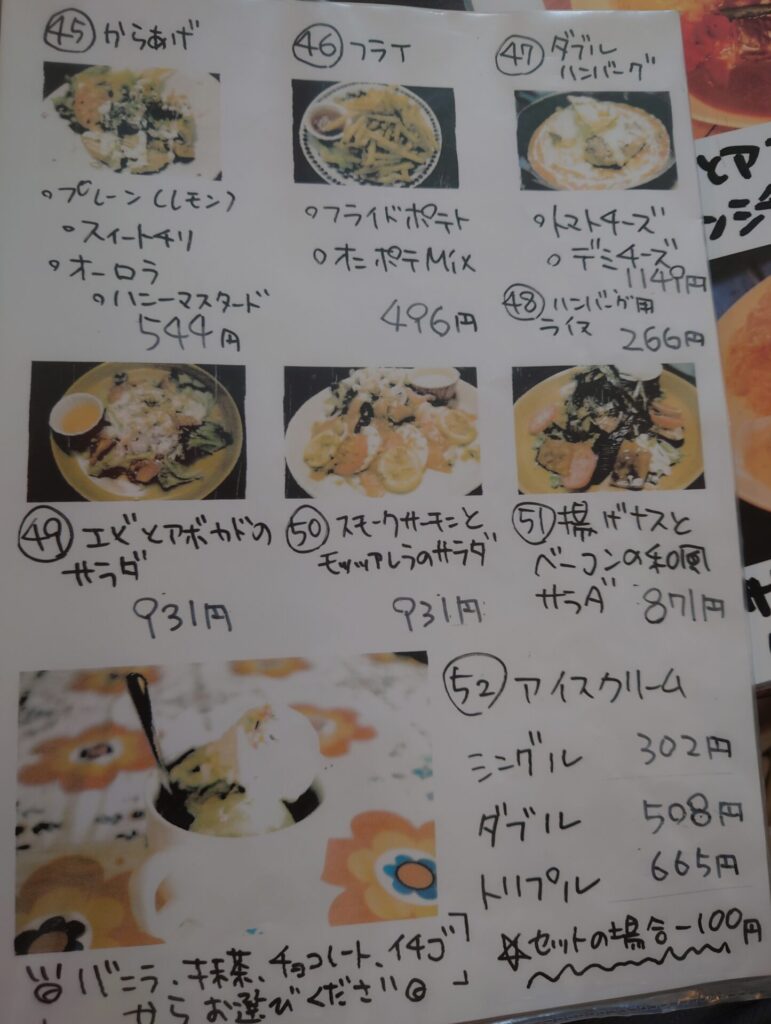 ㊺ からあげ
○プレーン(レモン)
○スイートチリ
○オーロラ
○ハニーマスタード
544円
㊻ フライ
○フライドポテト
○オニポテMix
496円
㊼ ダブル
ハンバーグ
○トマトチーズ
○デミチーズ
1149円
㊽ ハンバーグ用
ライス 266円
㊾ エビとアボカドの
サラダ
931円
㊿ スモークサーモンと
モッツアレラのサラダ
931円
51 揚げナスと
ベーコンの和風
サラダ 871円
52 アイスクリーム
シングル 302円
ダブル 508円
トリプル 665円
☆セットの場合-100円
バニラ、抹茶、チョコレート、イチゴ
からお選びください
とア